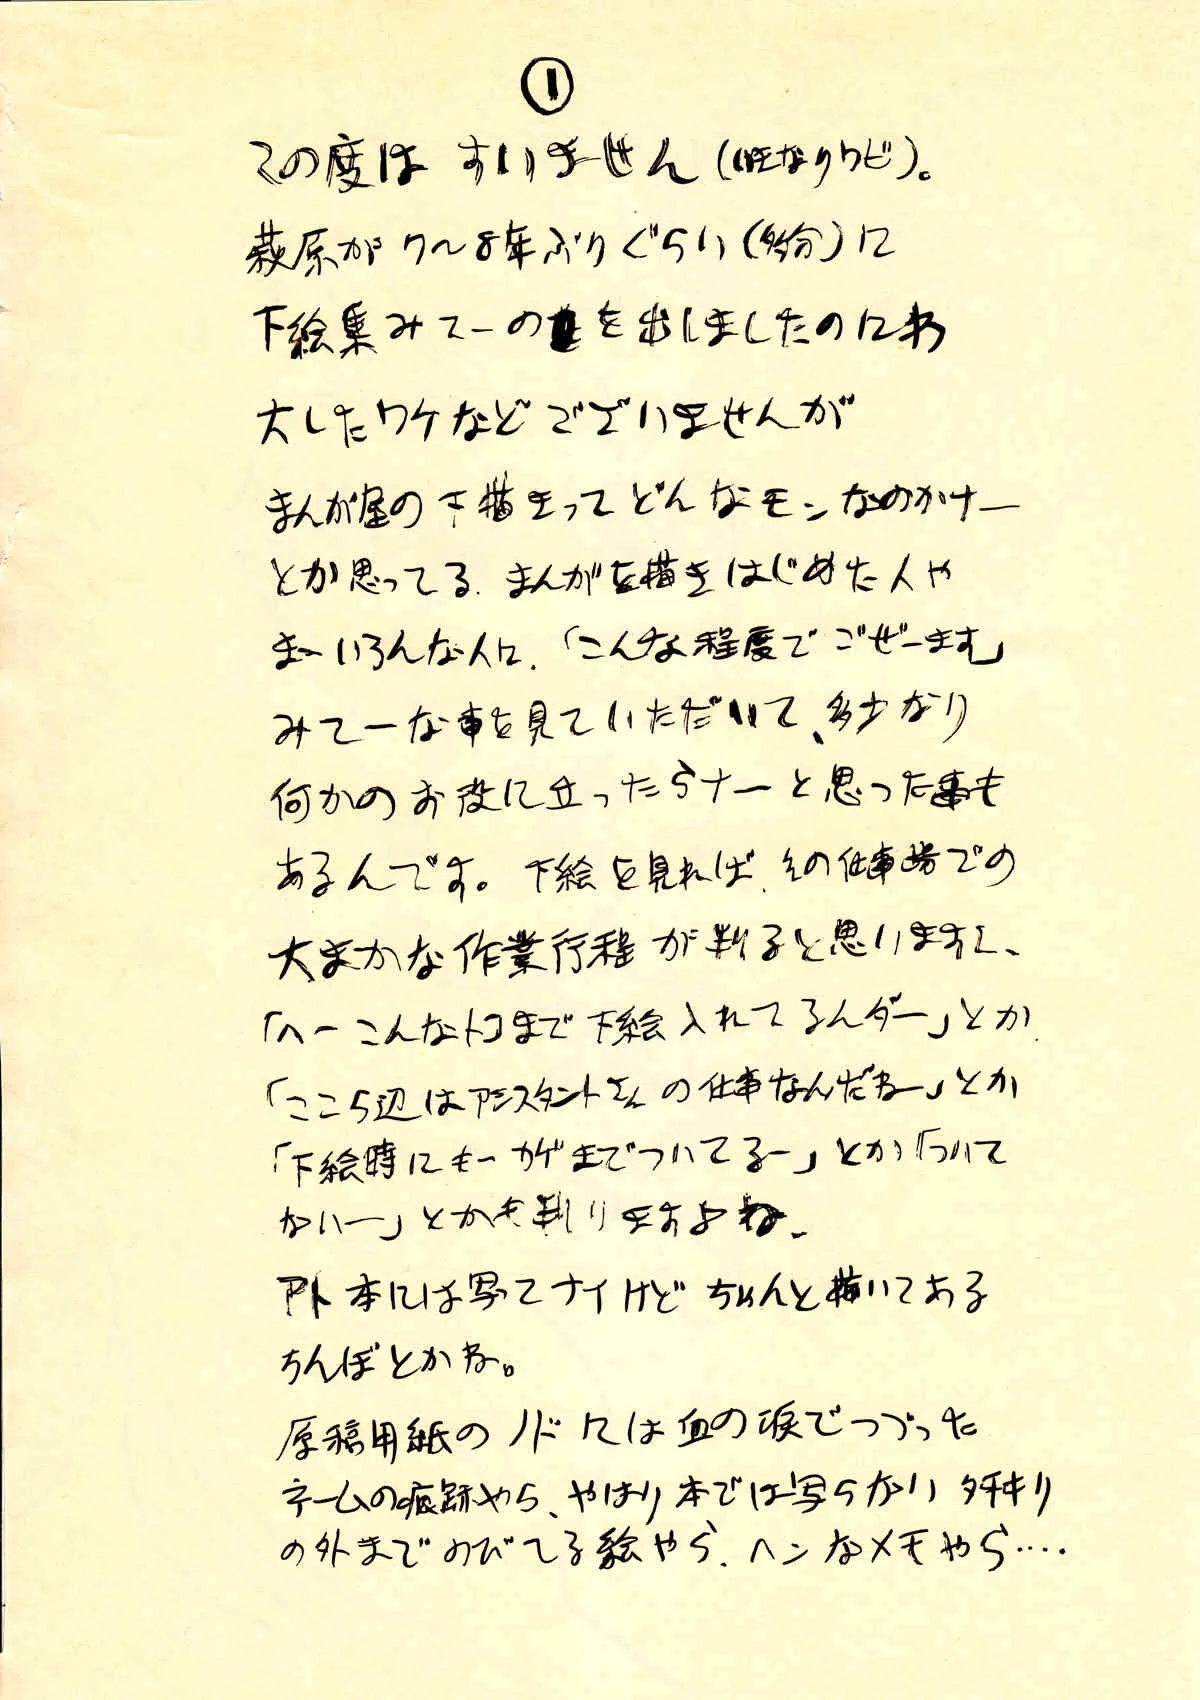 ①
この度は すいません(いきなりワビ)。
萩原が 7～8年ぶりぐらい(多分)に
下絵集みてーのを出しましたのにわ
大したワケなどございませんが
まんが屋の下描きってどんなモンなのかナー
とか思ってる、まんがを描きはじめた人や
まーいろんな人に、「こんな程度でごぜーます」
みてーな事を見ていただいて、多少なり
何かのお役に立ったらナーと思った事も
あるんです。下絵を見れば、その仕事場での
大まかな作業行程が判ると思いますし、
「へーこんなトコまで下絵入れてるんダー」とか
「ここら辺はアシスタントさんの仕事なんだねー」とか
「下絵時にもーカゲまでついてるー」とか「ついて
ないー」とかも判りますよね、
アト本には写ってナイけどちゃんと描いてある
ちんぽとかね。
原稿用紙のノドには血の涙でつづった
ネームの痕跡やら、やはり本では写らないタチキリ
の外までのびてる絵やら、ヘンなメモやら‥‥